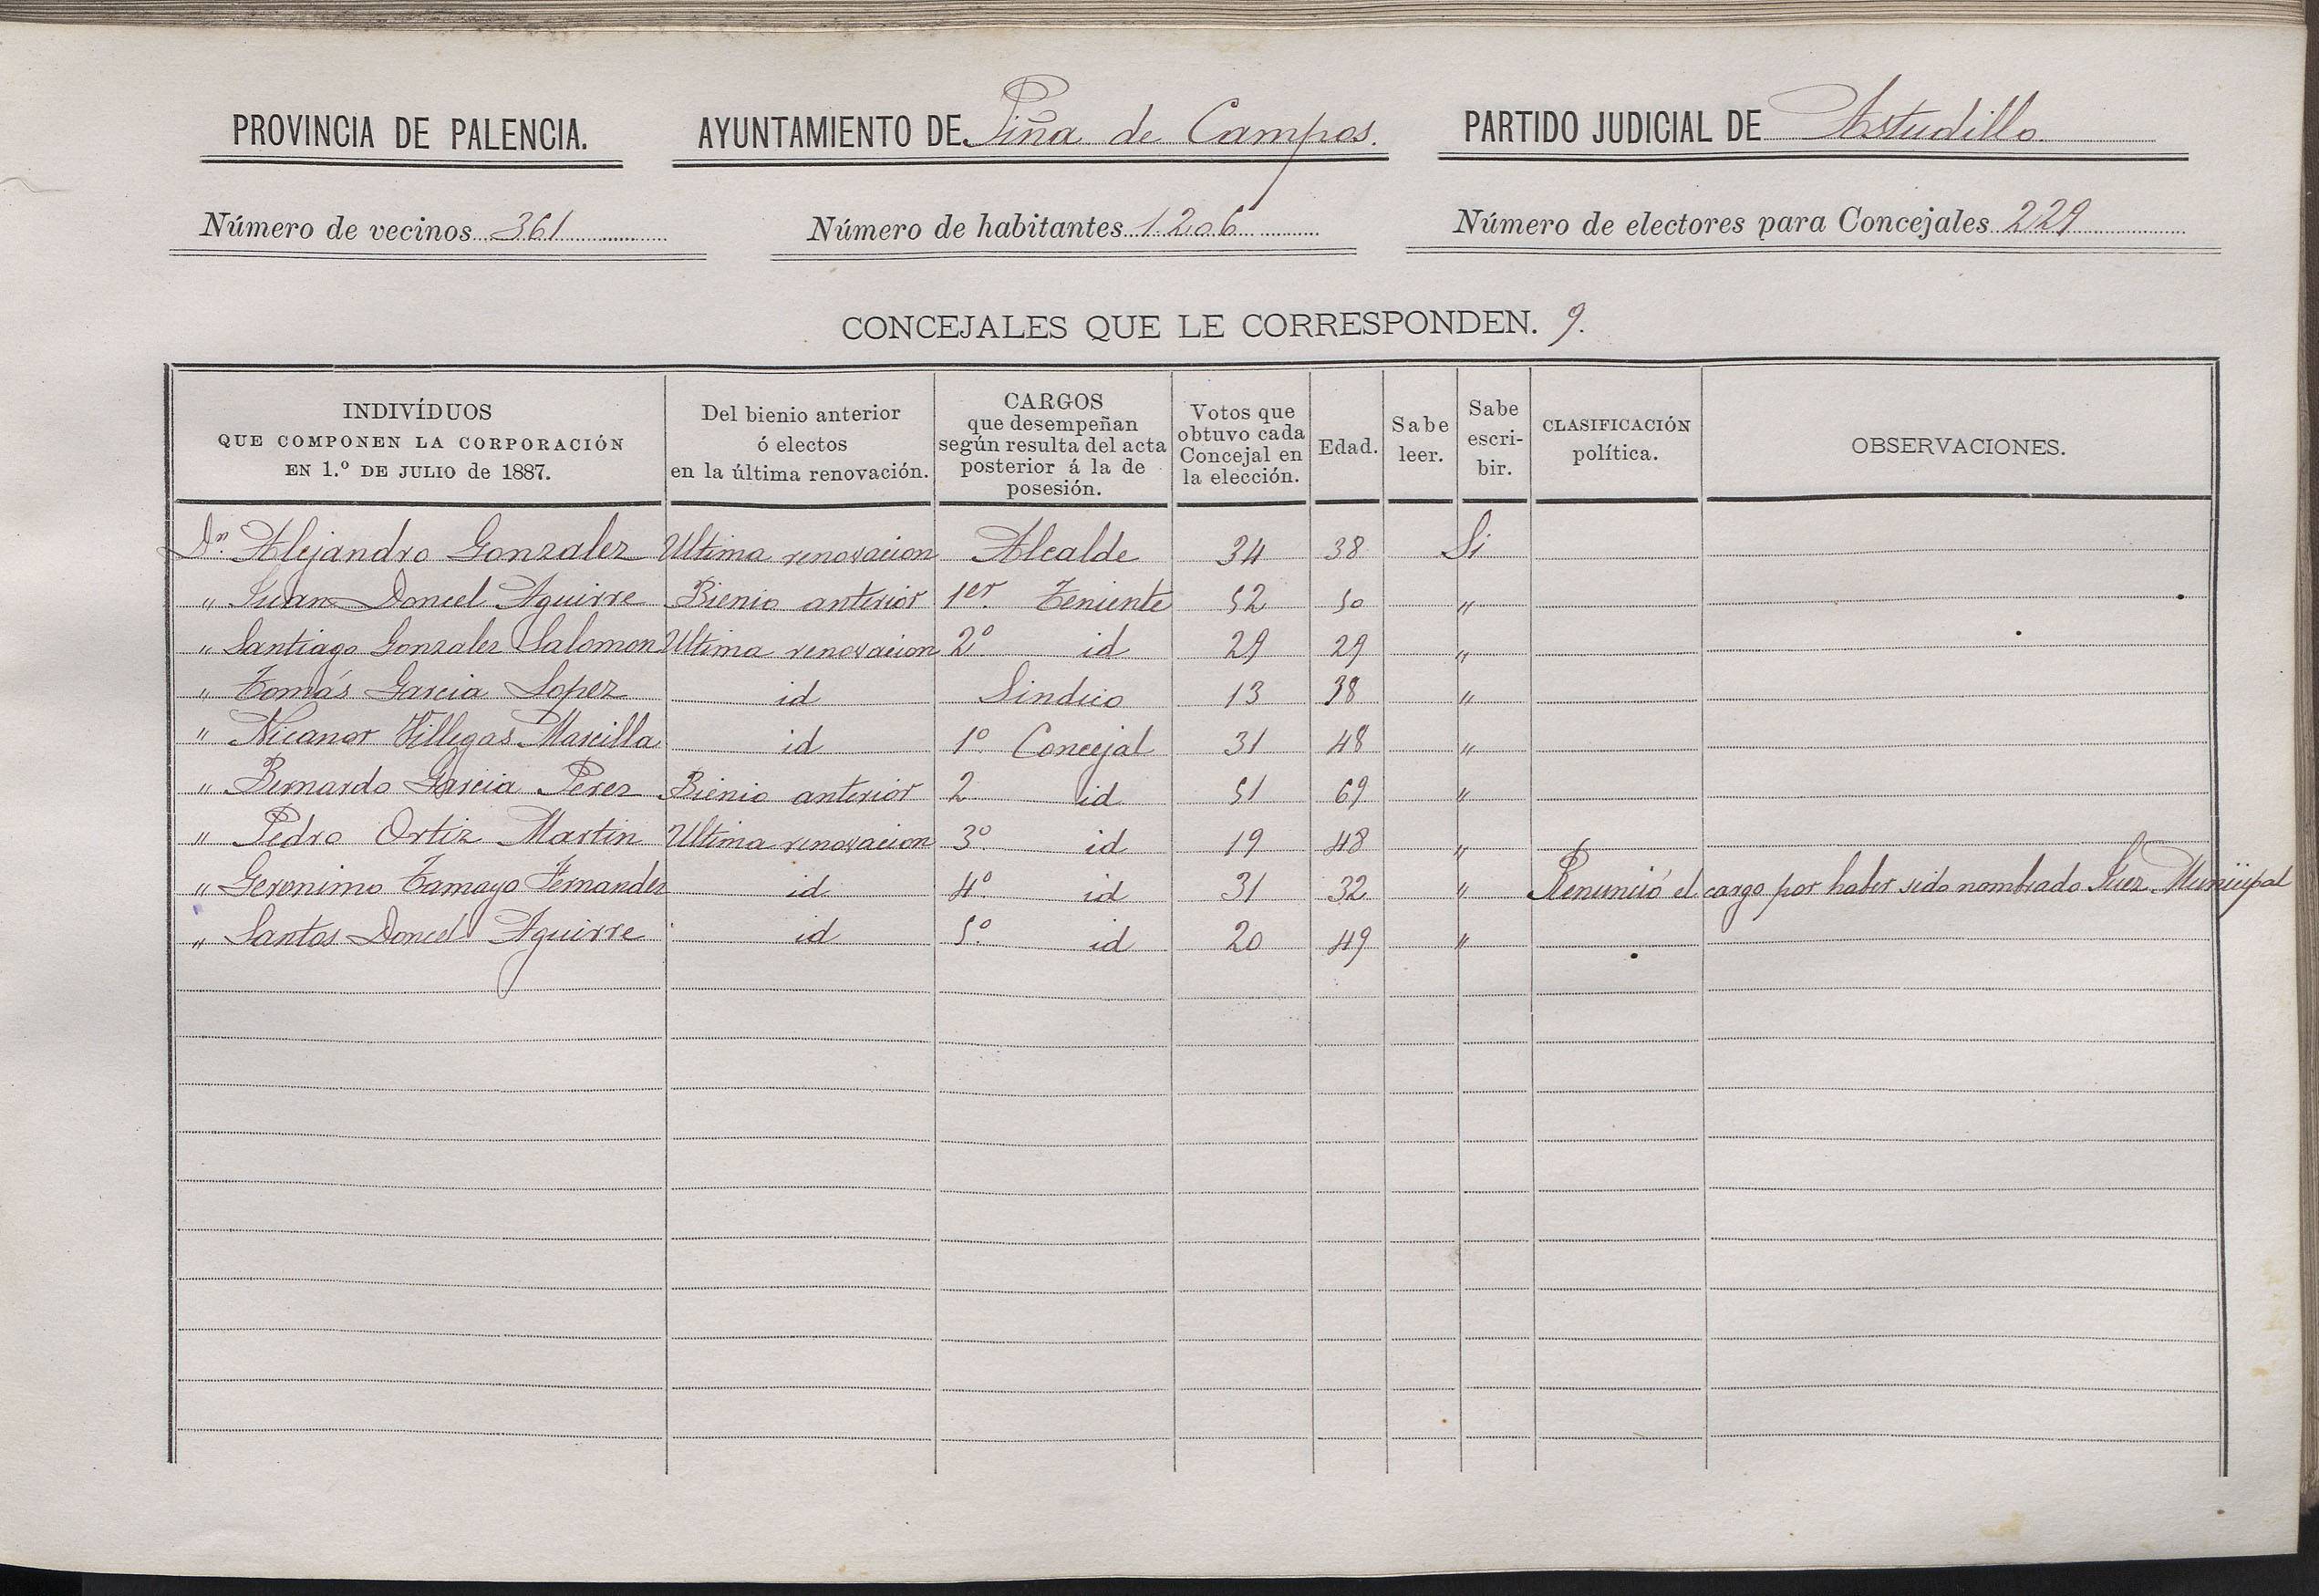 PROVINCIA DE PALENCIA. AYUNTAMIENTO DE Piña de Campos. PARTIDO JUDICIAL DE Astudillo.
Número de vecinos 361 Número de habitantes 1206 Número de electores para Concejales 229
CONCEJALES QUE LE CORRESPONDEN. 9.
INDIVÍDUOS
QUE COMPONEN LA CORPORACIÓN
EN 1.º DE JULIO de 1887.
Del bienio anterior
ó electos
en la última renovación.
CARGOS
que desempeñan
según resulta del acta
posterior á la de
posesión.
Votos que
obtuvo cada
Concejal en
la elección.
Edad.
Sabe
leer.
Sabe
escri-
bir.
CLASIFICACIÓN
política.
OBSERVACIONES.
Dn. Alejandro Gonzalez Ultima renovacion Alcalde 34 38 Si
" Juan Doncel Aguirre Bienio anterior 1er. Teniente 52 50 "
" Santiago Gonzalez Salomon Ultima renovacion 2º id 29 29 "
" Tomás Garcia Lopez id Sindico 13 38 "
" Nicanor Villegas Marcilla id 1º Concejal 31 48 "
" Bernardo Garcia Perez Bienio anterior 2 id 51 69 "
" Pedro Ortiz Martin Ultima renovacion 3º id 19 48 "
" Geronimo Tamayo Fernandez id 4º id 31 32 " Renunció el cargo por haber sido nombrado Juez Municipal
" Santos Doncel Aguirre id 5º id 20 49 "